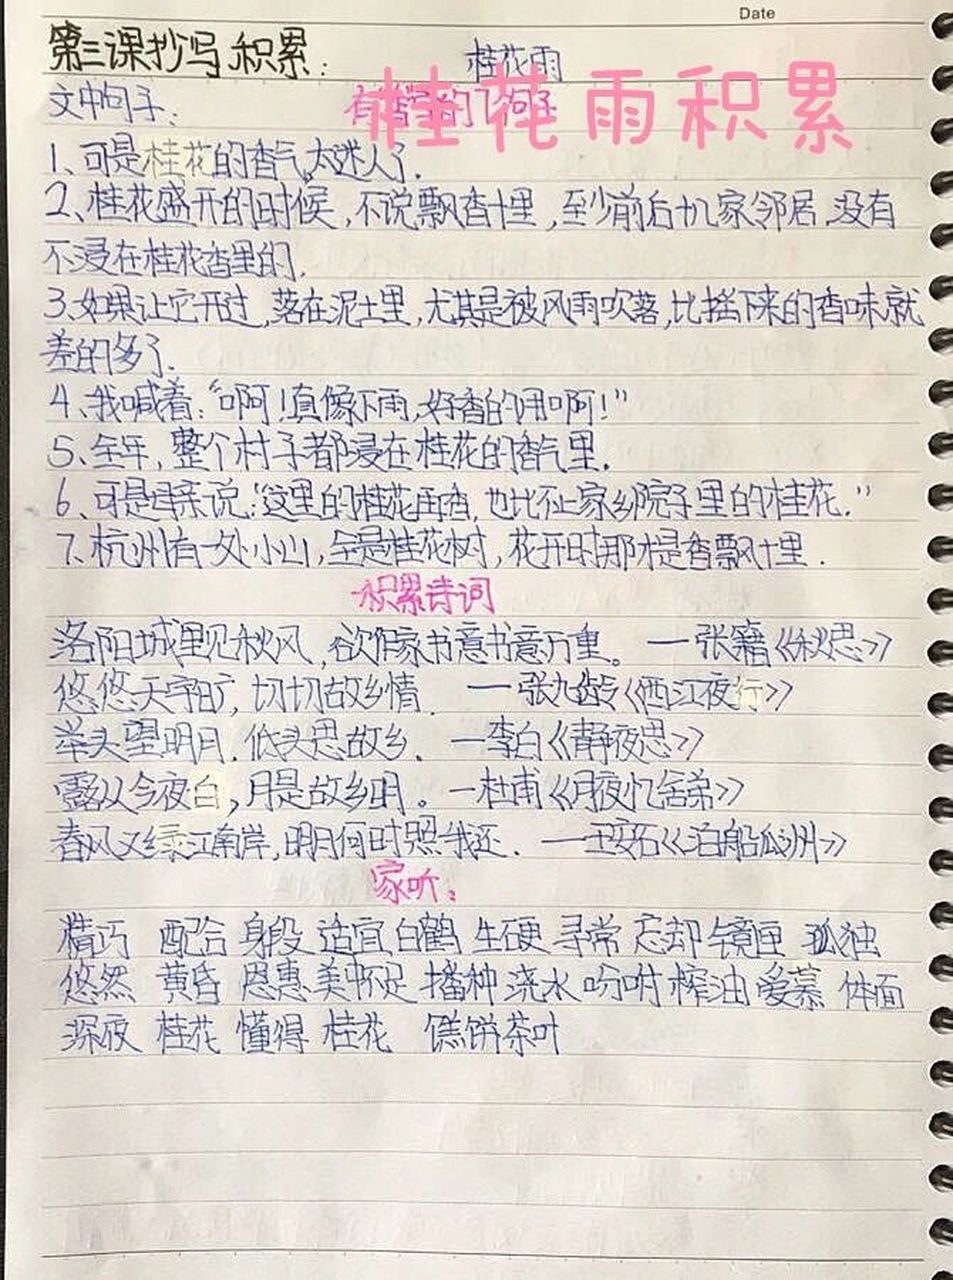 Date
第三课抄写 积累：
桂花雨
桂花雨积累
文中句子：
有香字的7个句子
1、可是桂花的香气太迷人了.
2、桂花盛开的时候,不说飘香十里,至少前后十几家邻居,没有
不浸在桂花香里的.
3、如果让它开过,落在泥土里,尤其是被风雨吹落,比摇下来的香味就
差的多了.
4、我喊着:“啊!真像下雨,好香的雨啊!”
5、全年,整个村子都浸在桂花的香气里.
6、可是母亲说:“这里的桂花再香,也比不上家乡院子里的桂花.”
7、杭州有一处小山,全是桂花树,花开时那才是香飘十里.
积累诗词
洛阳城里见秋风,欲作家书意书意万重。 —张籍《秋思》
悠悠天宇旷,切切故乡情. —张九龄《西江夜行》
举头望明月.低头思故乡. —李白《静夜思》
露从今夜白,月是故乡明。—杜甫《月夜忆舍弟》
春风又绿江南岸,明月何时照我还. —王安石《泊船瓜洲》
家听:
精巧 配合 身段 适宜 白鹤 生硬 寻常 忘却 镜匣 孤独
悠然 黄昏 恩惠 美中不足 播种 浇水 吩咐 榨油 爱慕 体面
深夜 桂花 懂得 桂花 糕饼 茶叶